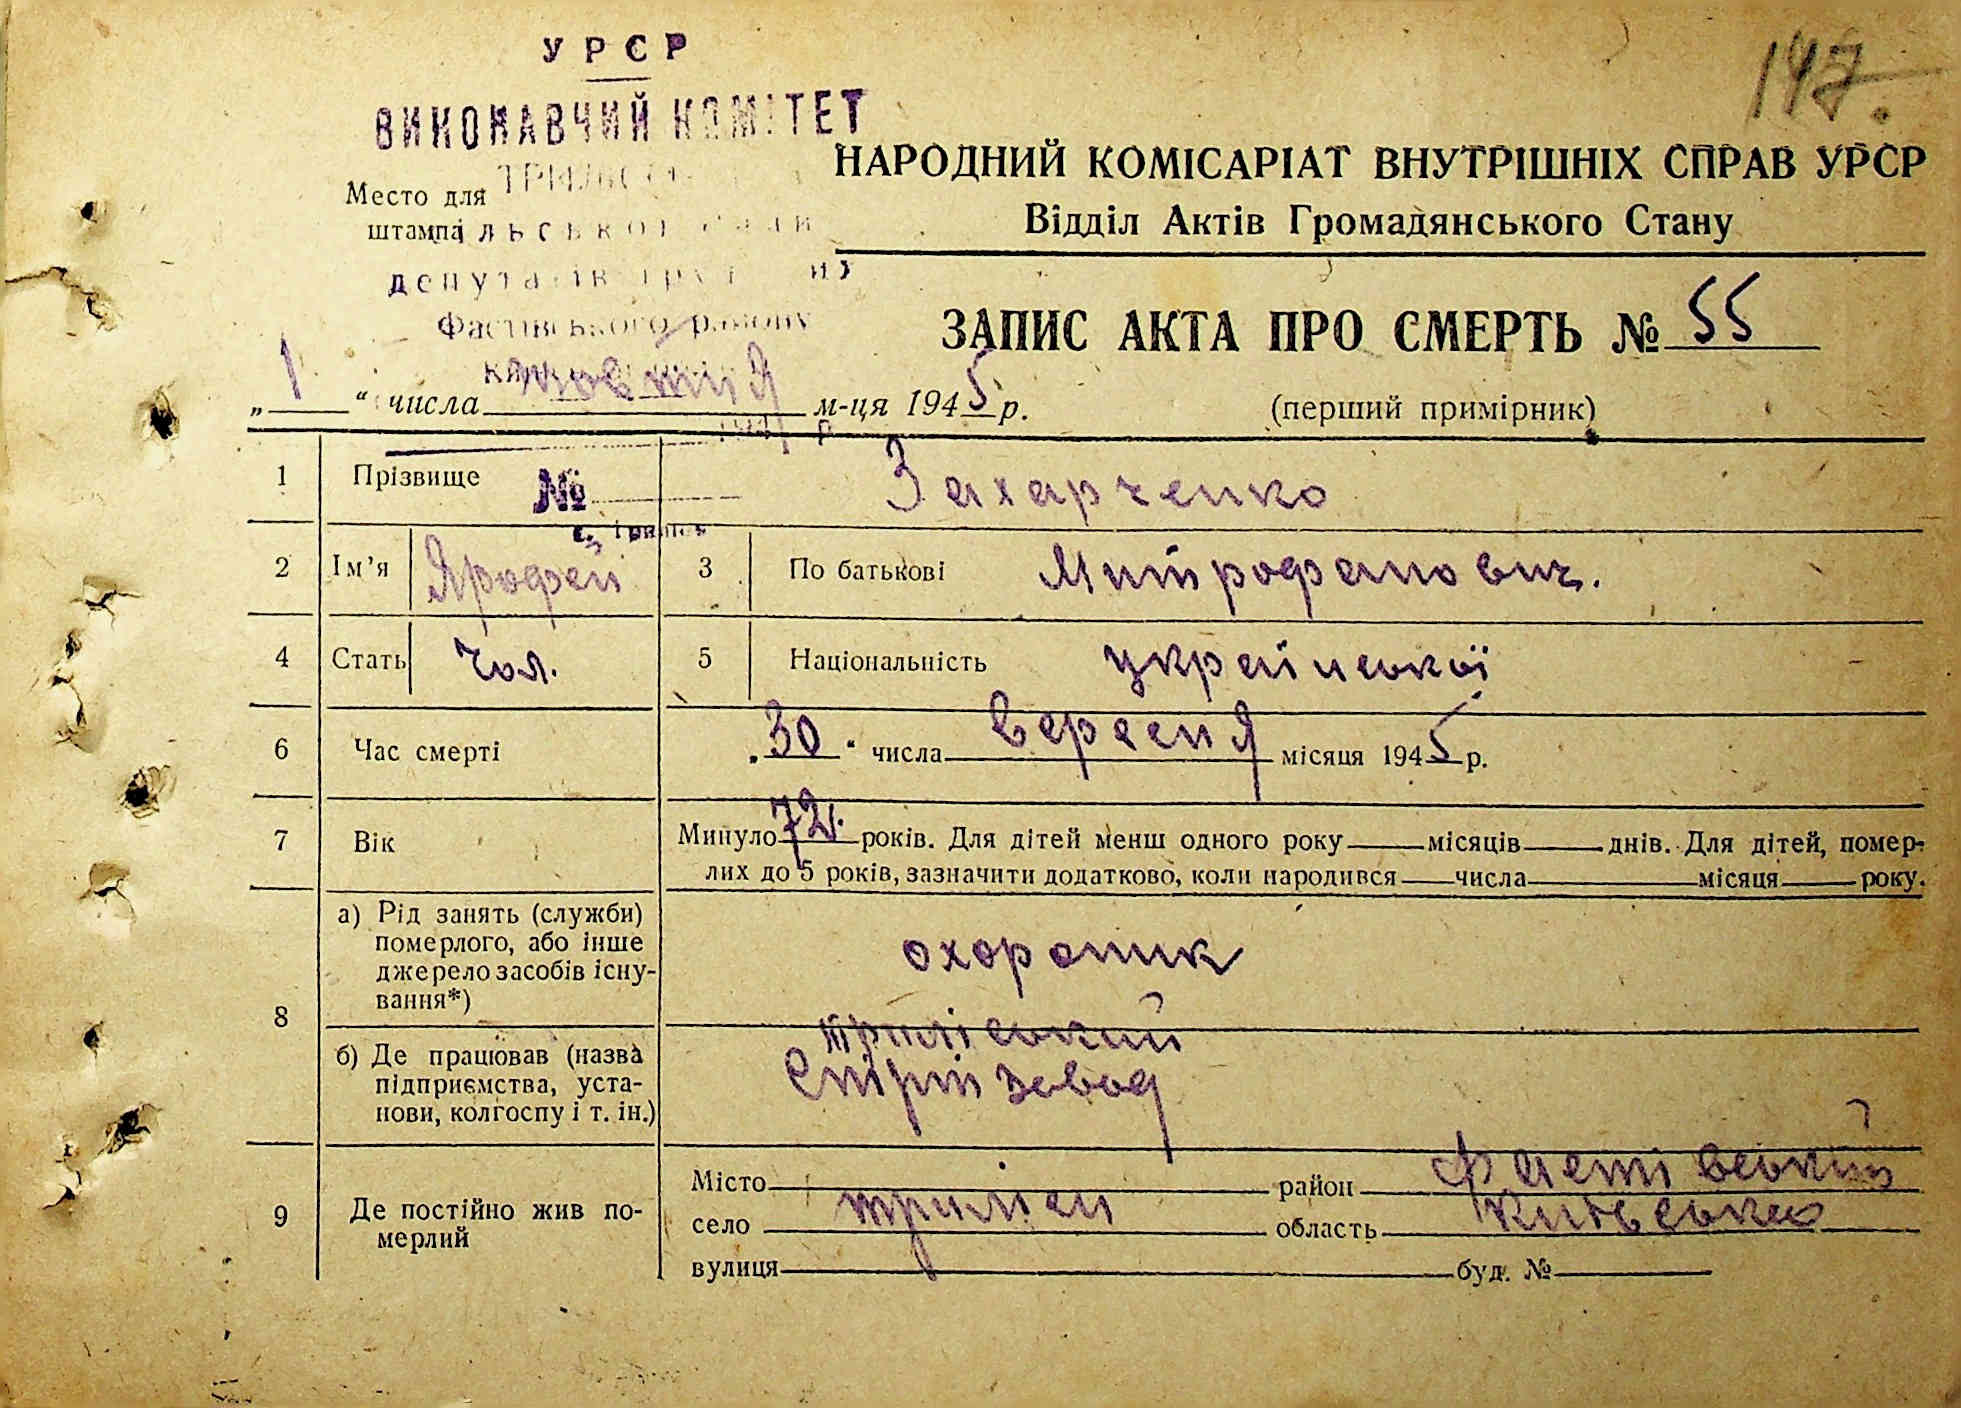 147.
УРСР
ВИКОНАВЧИЙ КОМІТЕТ
НАРОДНИЙ КОМІСАРІАТ ВНУТРІШНІХ СПРАВ УРСР
Відділ Актів Громадянського Стану
Место для штампа
депутатів
Фастівського району
ЗАПИС АКТА ПРО СМЕРТЬ № 55
„ 1 “ числа жовтня м-ця 1945 р.
(перший примірник)
1 Прізвище Захарченко
№
2 Ім’я Ярофей 3 По батькові Митрофанович.
4 Стать Чол. 5 Національність української
6 Час смерті „30“ числа вересня місяця 1945 р.
7 Вік Минуло 72. років. Для дітей менш одного року місяців днів. Для дітей, помер-
лих до 5 років, зазначити додатково, коли народився числа місяця року.
8 а) Рід занять (служби) померлого, або інше джерело засобів існу-вання*) охороник
б) Де працював (назва підприємства, уста-нови, колгоспу і т. ін.) Триліський
Спірт завод
9 Де постійно жив по-мерлий
Місто район Фастівський
село Триліси область Київська
вулиця буд. №